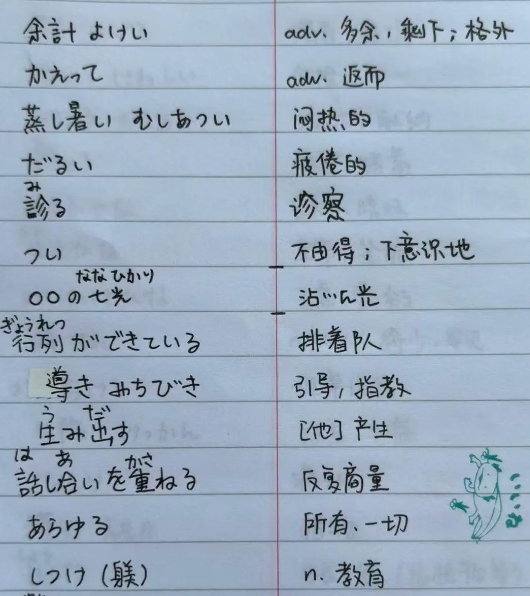 余計 よけい adv. 多余，剩下；格外
かえって adv. 返而
蒸し暑い むしあつい 闷热的
だるい 疲倦的
み
診る 诊察
つい 不由得；下意识地
ななひかり
〇〇の七光 沾〇〇光
ぎょうれつ
行列ができている 排着队
導き みちびき 引导，指教
う だ
生み出す [他] 产生
は あ かさ
話し合いを重ねる 反复商量
あらゆる 所有、一切
しつけ（躾） n. 教育